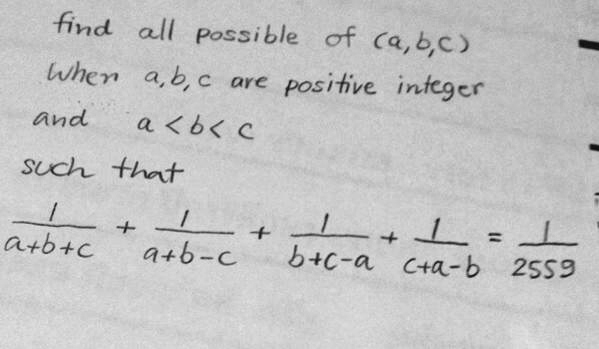 find all possible of (a,b,c)
When a,b,c are positive integer
and a < b < c
such that
1/(a+b+c) + 1/(a+b-c) + 1/(b+c-a) + 1/(c+a-b) = 1/2559